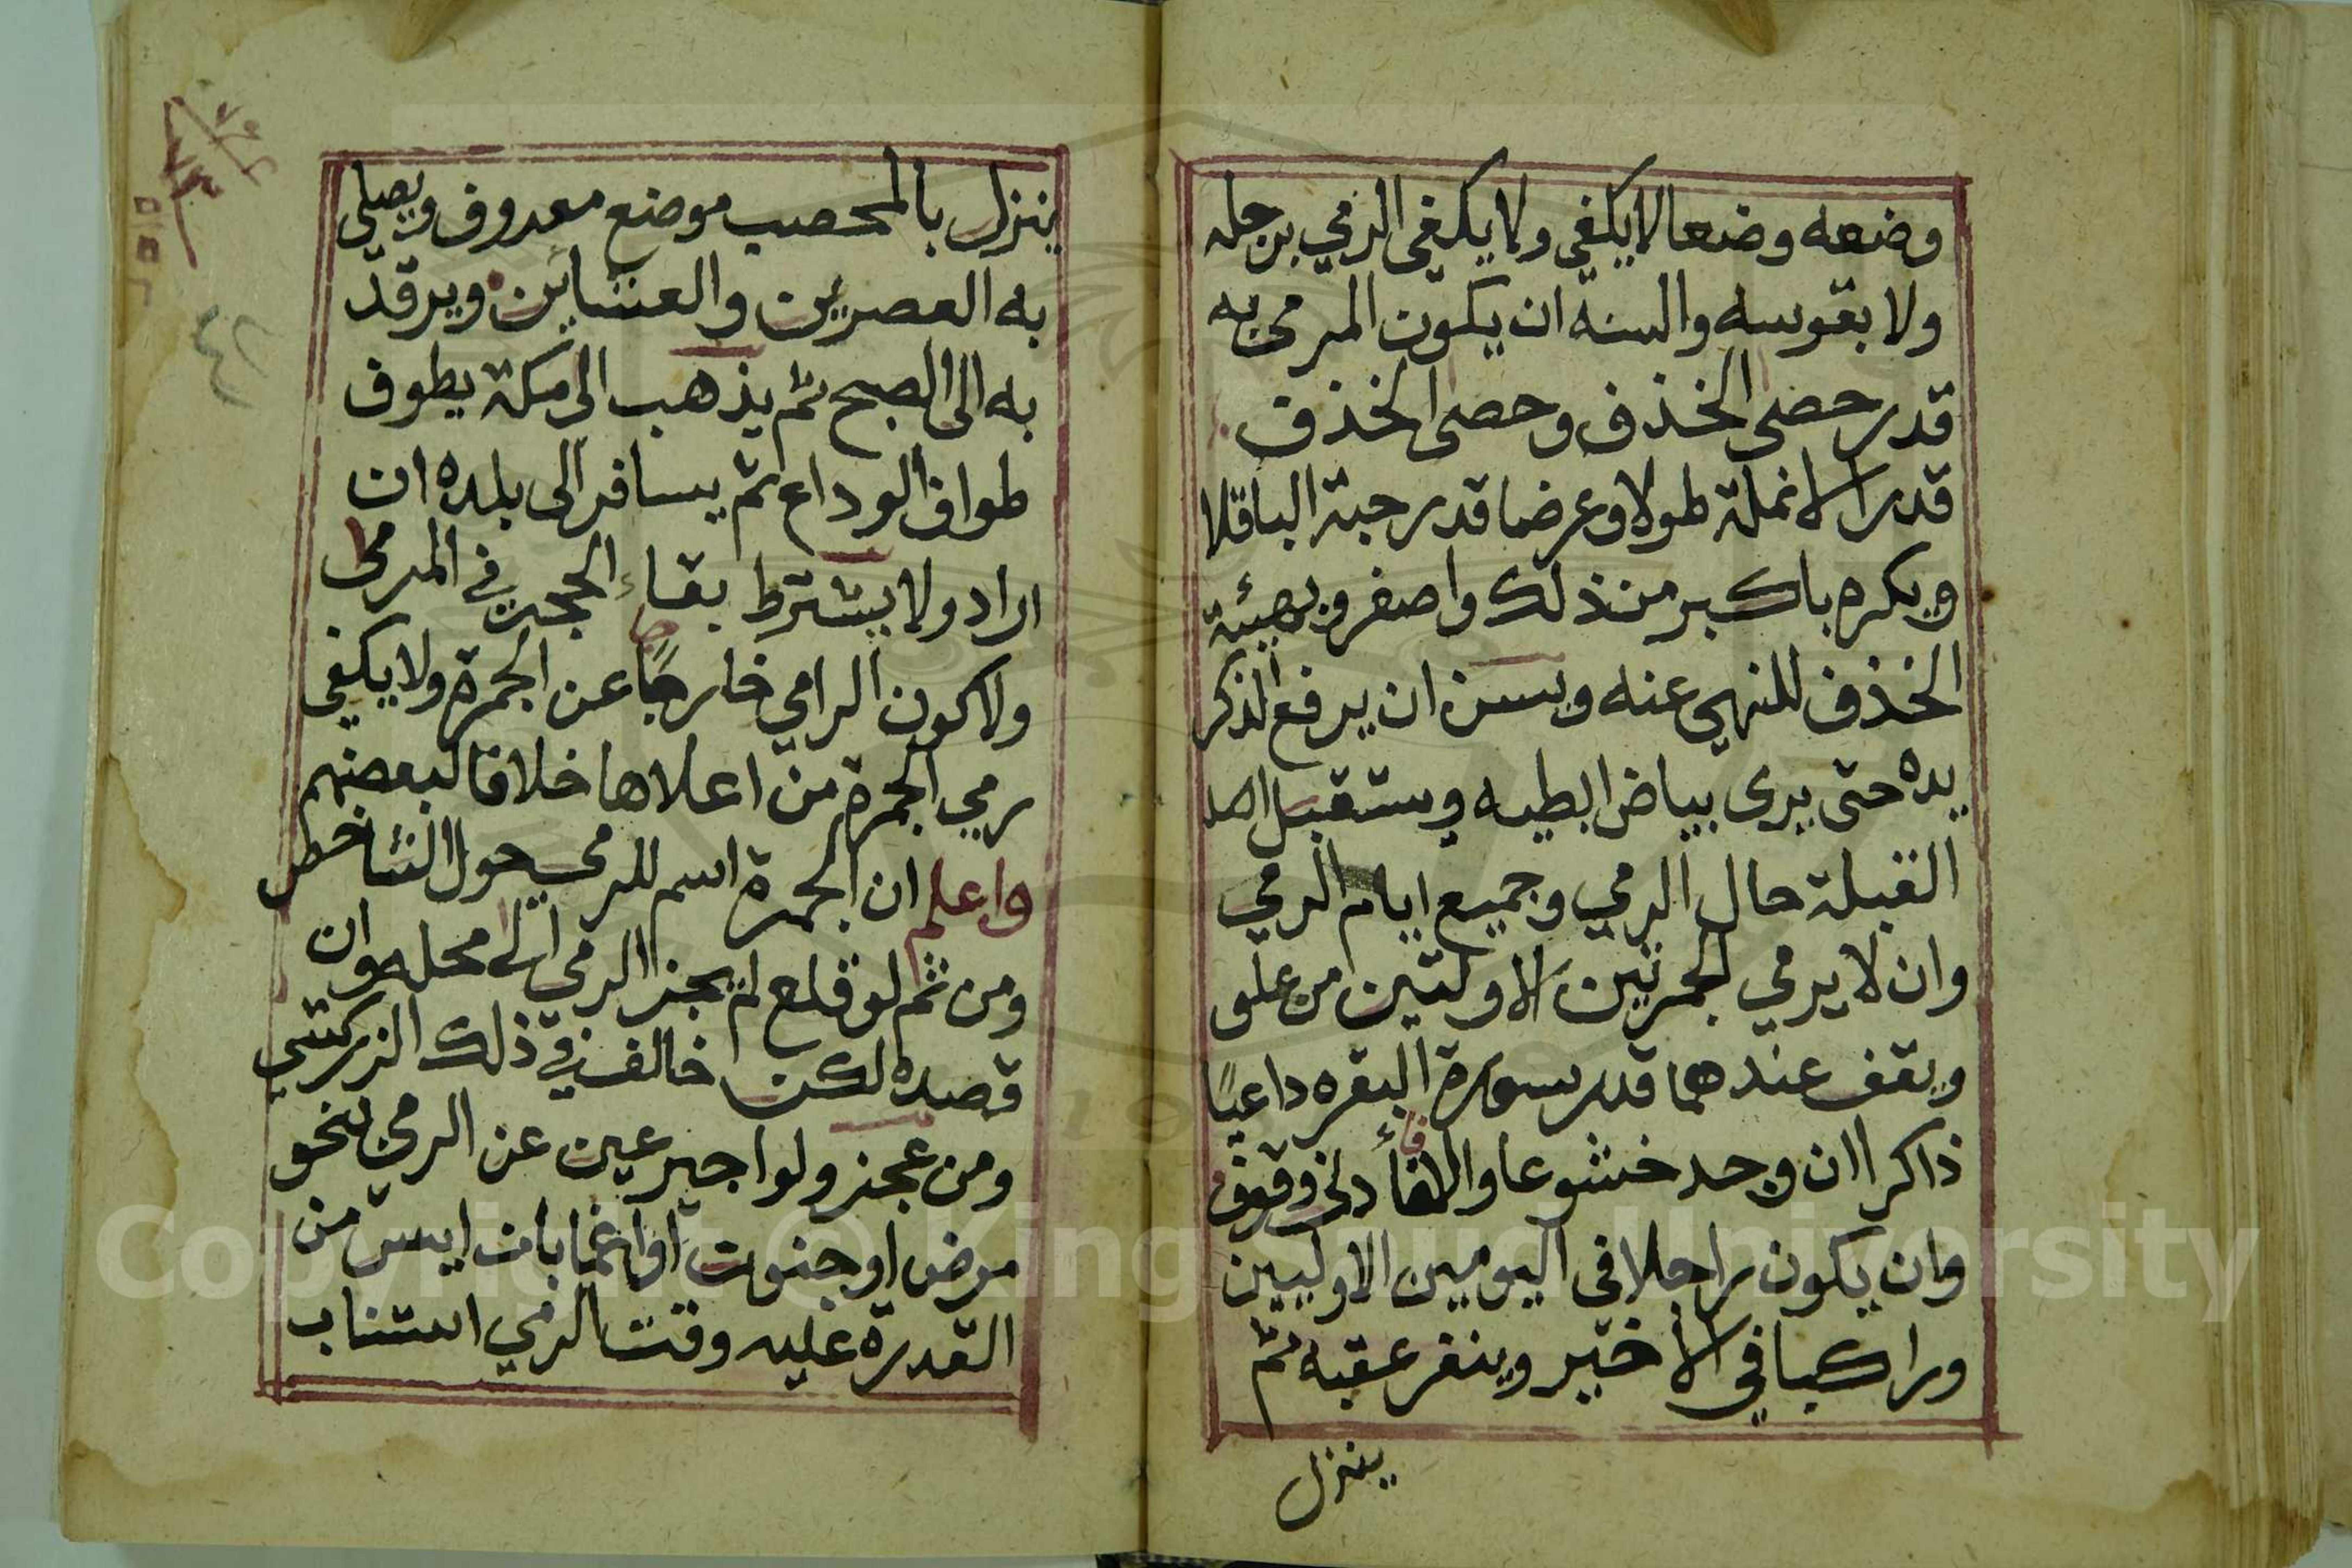 وضعه وضعا لا يكفي ولا يكفي الرمي برجله
ولا بقوسه والسنه ان يكون المرمي به
قدر حصى الخذف وحصى الخذف
قدر الانملة طولا وعرضا قدر حبة الباقلا
ويكره باكبر من ذلك واصغر وبهيئة
الخذف للنهي عنه ويسن ان يرفع الذكر
يده حتى يرى بياض ابطيه ويستقبل
القبلة حال الرمي وجميع ايام الرمي
وان لا يرمي الجمرتين الاولتين من علو
ويقف عندهما قدر سورة البقره داعيًا
ذاكرا ان وجد خشوعا والا فأدنى وقوف
وان يكون راجلا في اليومين الاوليين
وراكبا في الاخير وينفر عقبه ثم
ينزل
ينزل بالمحصب موضع معروف ويصلي
به العصرين والعشاين ويرقد
به الى الصبح ثم يذهب الى مكة يطوف
طواف الوداع ثم يسافر الى بلده ان
اراد ولا يشترط بقاء الحجر في المرمى
ولا كون الرامي خارجًا عن الجمرة ولا يكفي
رمي الجمرة من اعلاها خلافا لبعضهم
واعلم ان الجمرة اسم للمرمى حول الشاخص
ومن ثم لو قلع لم يجز الرمي الى محله وان
قصده لكن خالف في ذلك الزركشي
ومن عجز ولو اجير عين عن الرمي بنحو
مرض او جنون او اغما بان ايس من
القدرة عليه وقت الرمي استناب
Copyright © King Saud University